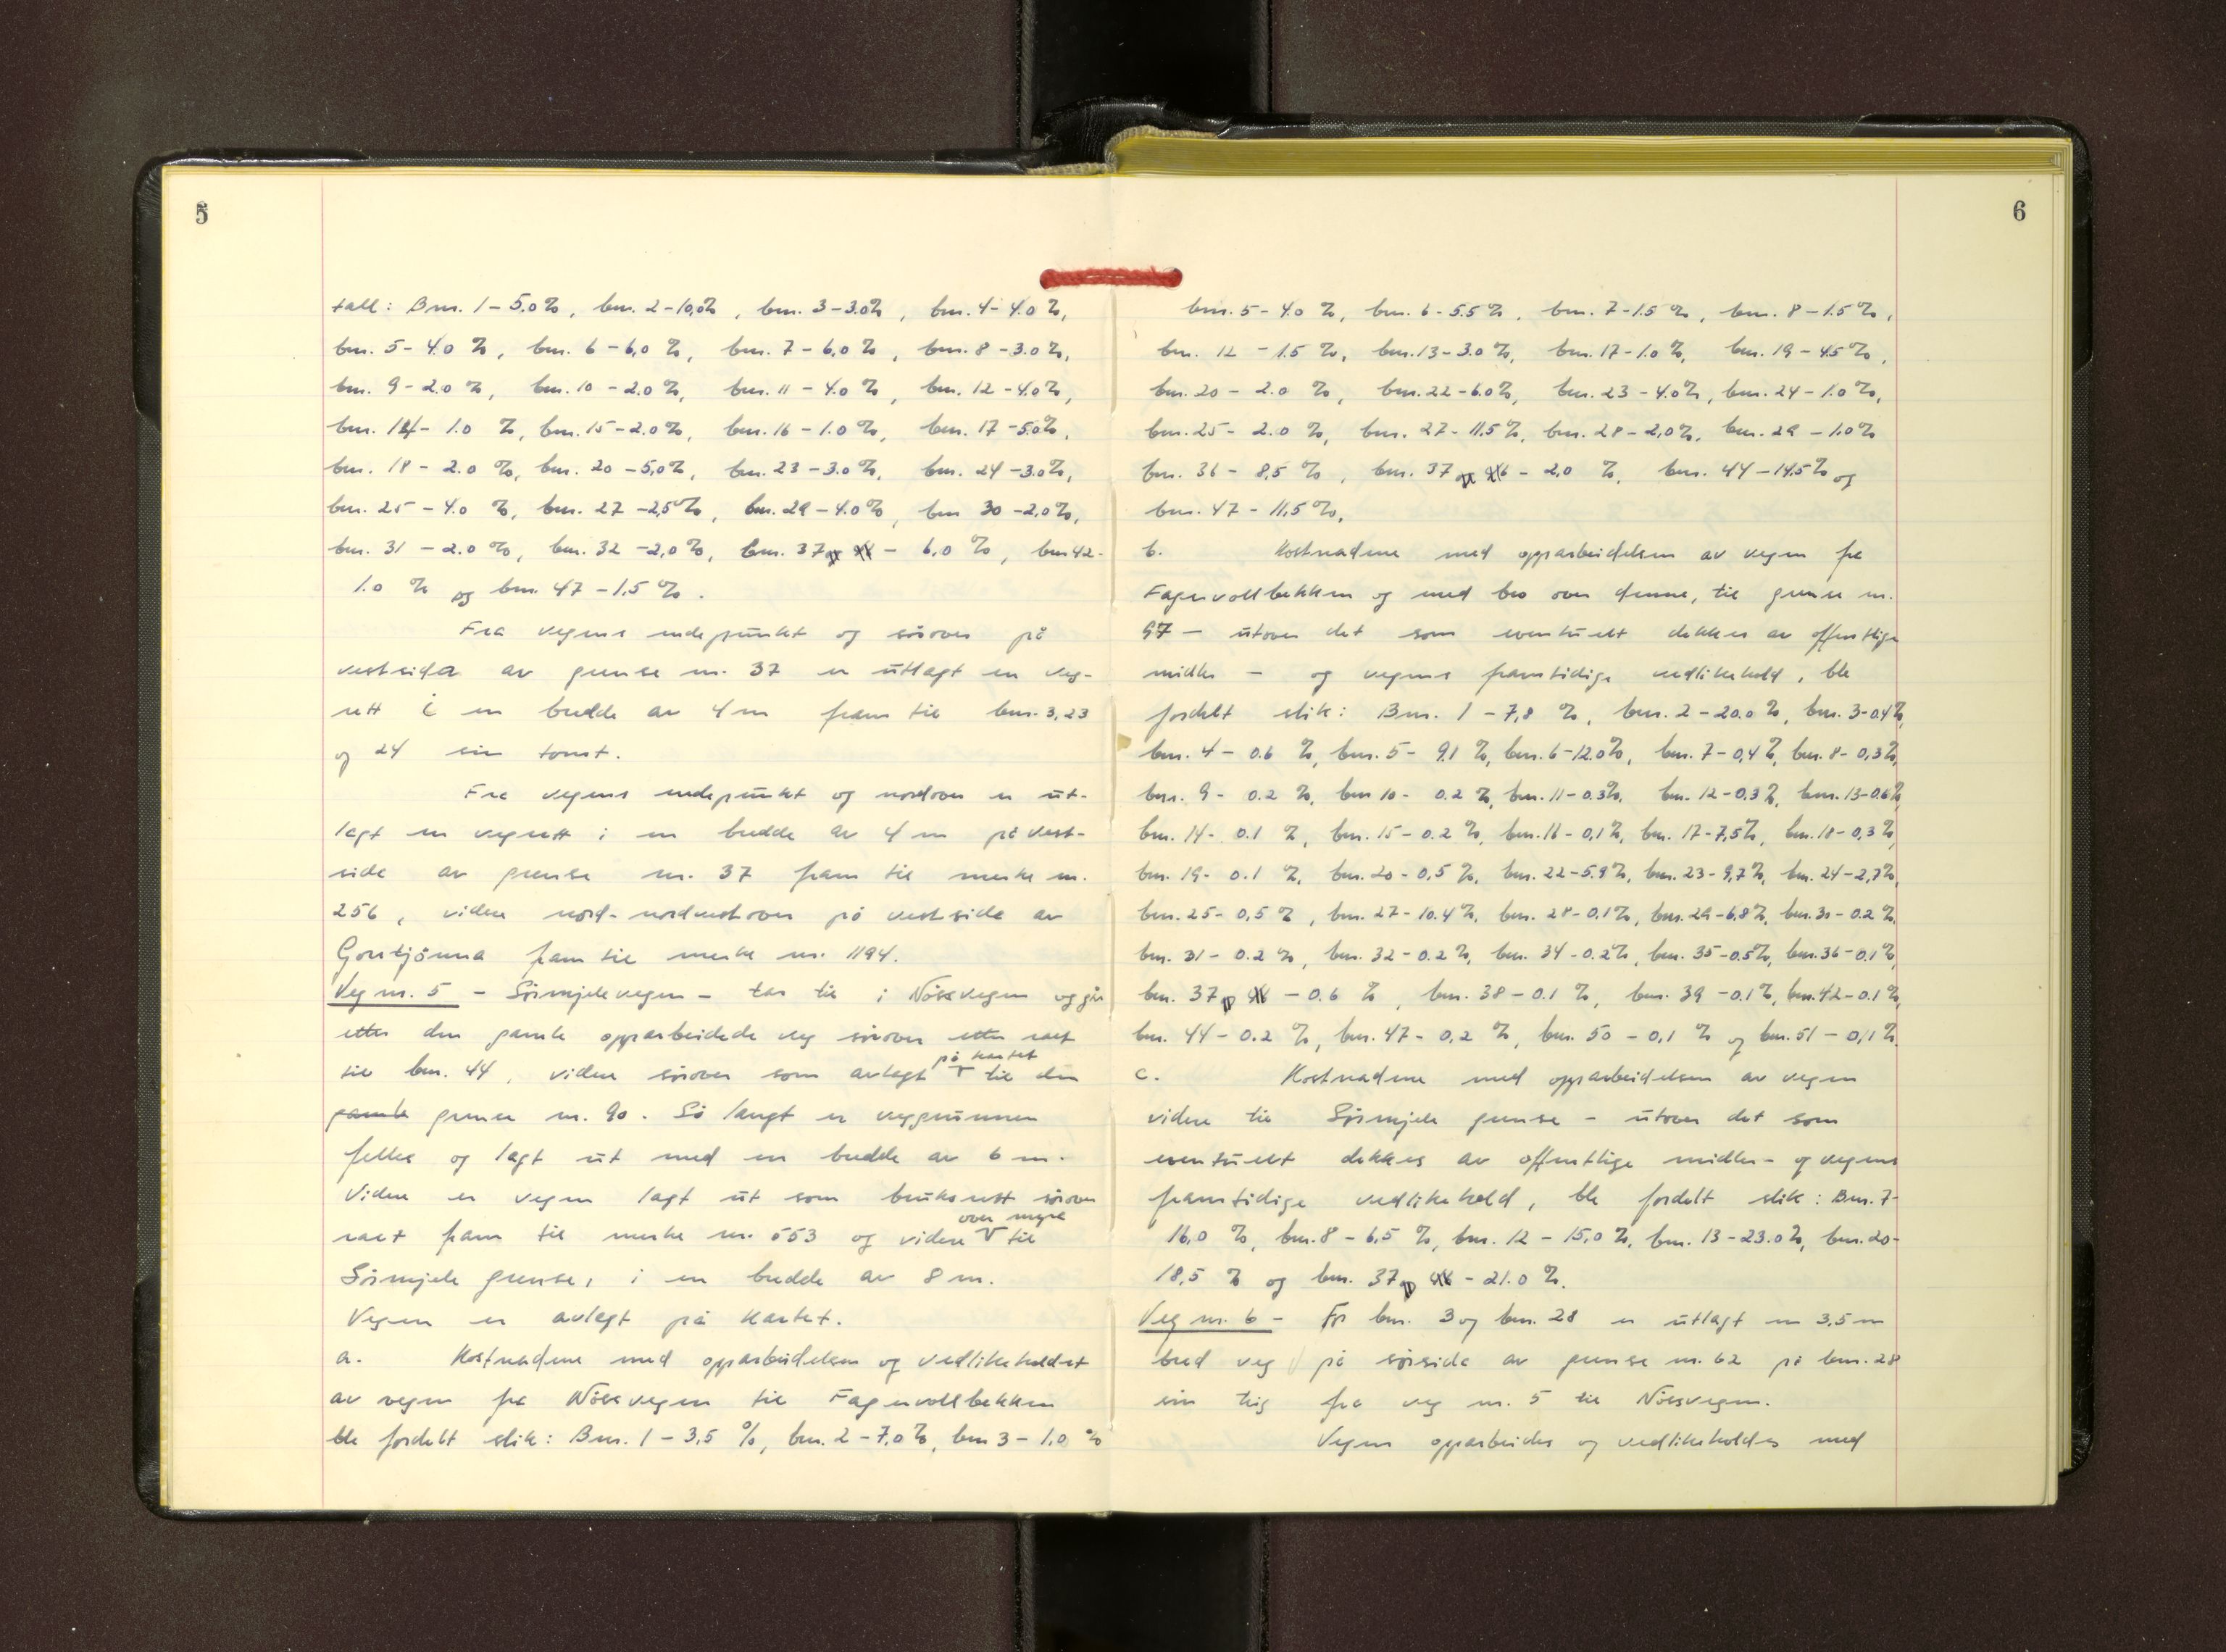 5
tall: Bnr. 1 - 5.0 %, bnr. 2 - 10,0 %, bnr. 3 - 3.0 %, bnr. 4 - 4.0 %,
bnr. 5 - 4.0 %, bnr. 6 - 6,0 %, bnr. 7 - 6,0 %, bnr. 8 - 3.0 %,
bnr. 9 - 2.0 %, bnr. 10 - 2.0 %, bnr. 11 - 4.0 %, bnr. 12 - 4.0 %,
bnr. 14 - 1.0 %, bnr. 15 - 2.0 %, bnr. 16 - 1.0 %, bnr. 17 - 5.0 %,
bnr. 18 - 2.0 %, bnr. 20 - 5,0 %, bnr. 23 - 3.0 %, bnr. 24 - 3.0 %,
bnr. 25 - 4.0 %, bnr. 27 - 2,5 %, bnr. 29 - 4.0 %, bnr 30 - 2,0 %,
bnr. 31 - 2.0 %, bnr. 32 - 2,0 %, bnr. 37 - 6,0 %, bnr 42 -
1.0 % og bnr. 47 - 1,5 %.
Fra vegens endepunkt og sørover på
vestsida av grense nr. 37 er utlagt en veg-
rett i en bredde av 4 m fram til bnr. 3, 23
og 24 sin tomt.
Fra vegens endepunkt og nordover er ut-
lagt en vegrett i en bredde av 4 m på vest-
side av grense nr. 37 fram til merke nr.
256, videre nord-nordvestover på vestside av
Gorrtjönna fram til merke nr. 1194.
Veg nr. 5 - Sörmjelevegen - tar til i Nössvegen og går
etter den gamle opparbeidede veg sörover etter rast
til bnr. 44, videre sörover som avlagt på kartet til den
gamle grense nr. 90. Så langt er veggrunnen
felles og lagt ut med en bredde av 6 m.
Videre er vegen lagt ut som bruksrett sörover
rast fram til merke nr. 553 og videre over myra til
Sörmjele grense, i en bredde av 8 m.
Vegen er avlagt på kartet.
a. Kostnadene med opparbeidelsen og vedlikeholdet
av vegen fra Nössvegen til Fagervollbekken
ble fordelt slik: Bnr. 1 - 3,5 %, bnr. 2 - 7,0 %, bnr 3 - 1,0 %
6
bnr. 5 - 4.0 %, bnr. 6 - 5.5 %, bnr. 7 - 1.5 %, bnr. 8 - 1.5 %,
bnr. 12 - 1.5 %, bnr. 13 - 3.0 %, bnr. 17 - 1.0 %, bnr. 19 - 4.5 %,
bnr. 20 - 2.0 %, bnr. 22 - 6.0 %, bnr. 23 - 4.0 %, bnr. 24 - 1.0 %,
bnr. 25 - 2.0 %, bnr. 27 - 11.5 %, bnr. 28 - 2,0 %, bnr. 29 - 1.0 %
bnr. 36 - 8,5 %, bnr. 37 - 2,0 %, bnr. 44 - 14.5 % og
bnr. 47 - 11,5 %.
b. Kostnadene med opparbeidelsen av vegen fra
Fagervollbekken og med bro over denne, til grense nr.
97 - utover det som eventuelt dekkes av offentlige
midler - og vegens framtidige vedlikehold, ble
fordelt slik: Bnr. 1 - 7,8 %, bnr. 2 - 20.0 %, bnr. 3 - 0.4 %,
bnr. 4 - 0.6 %, bnr. 5 - 9.1 %, bnr. 6 - 12.0 %, bnr. 7 - 0,4 %, bnr. 8 - 0,3 %,
bnr. 9 - 0.2 %, bnr 10 - 0.2 %, bnr. 11 - 0.3 %, bnr. 12 - 0.3 %, bnr. 13 - 0.6 %,
bnr. 14 - 0.1 %, bnr. 15 - 0.2 %, bnr. 16 - 0,1 %, bnr. 17 - 7,5 %, bnr. 18 - 0,3 %,
bnr. 19 - 0.1 %, bnr. 20 - 0,5 %, bnr. 22 - 5.9 %, bnr. 23 - 9,7 %, bnr. 24 - 2,7 %,
bnr. 25 - 0,5 %, bnr. 27 - 10.4 %, bnr. 28 - 0,1 %, bnr. 29 - 6,8 %, bnr. 30 - 0.2 %,
bnr. 31 - 0.2 %, bnr. 32 - 0.2 %, bnr. 34 - 0.2 %, bnr. 35 - 0.5 %, bnr. 36 - 0.1 %,
bnr. 37 - 0.6 %, bnr. 38 - 0.1 %, bnr. 39 - 0.1 %, bnr. 42 - 0.1 %,
bnr. 44 - 0.2 %, bnr. 47 - 0,2 %, bnr. 50 - 0,1 % og bnr. 51 - 0,1 %.
c. Kostnadene med opparbeidelsen av vegen
videre til Sörmjele grense - utover det som
eventuelt dekkes av offentlige midler - og vegens
framtidige vedlikehold, ble fordelt slik: Bnr. 7 -
16,0 %, bnr. 8 - 6,5 %, bnr. 12 - 15,0 %, bnr. 13 - 23.0 %, bnr. 20 -
18,5 % og bnr. 37 - 21.0 %.
Veg nr. 6 - For bnr. 3 og bnr. 28 er utlagt en 3,5 m
bred veg på sörside av grense nr. 62 på bnr. 28
sin teig fra veg nr. 5 til Nössvegen.
Vegen opparbeides og vedlikeholdes med